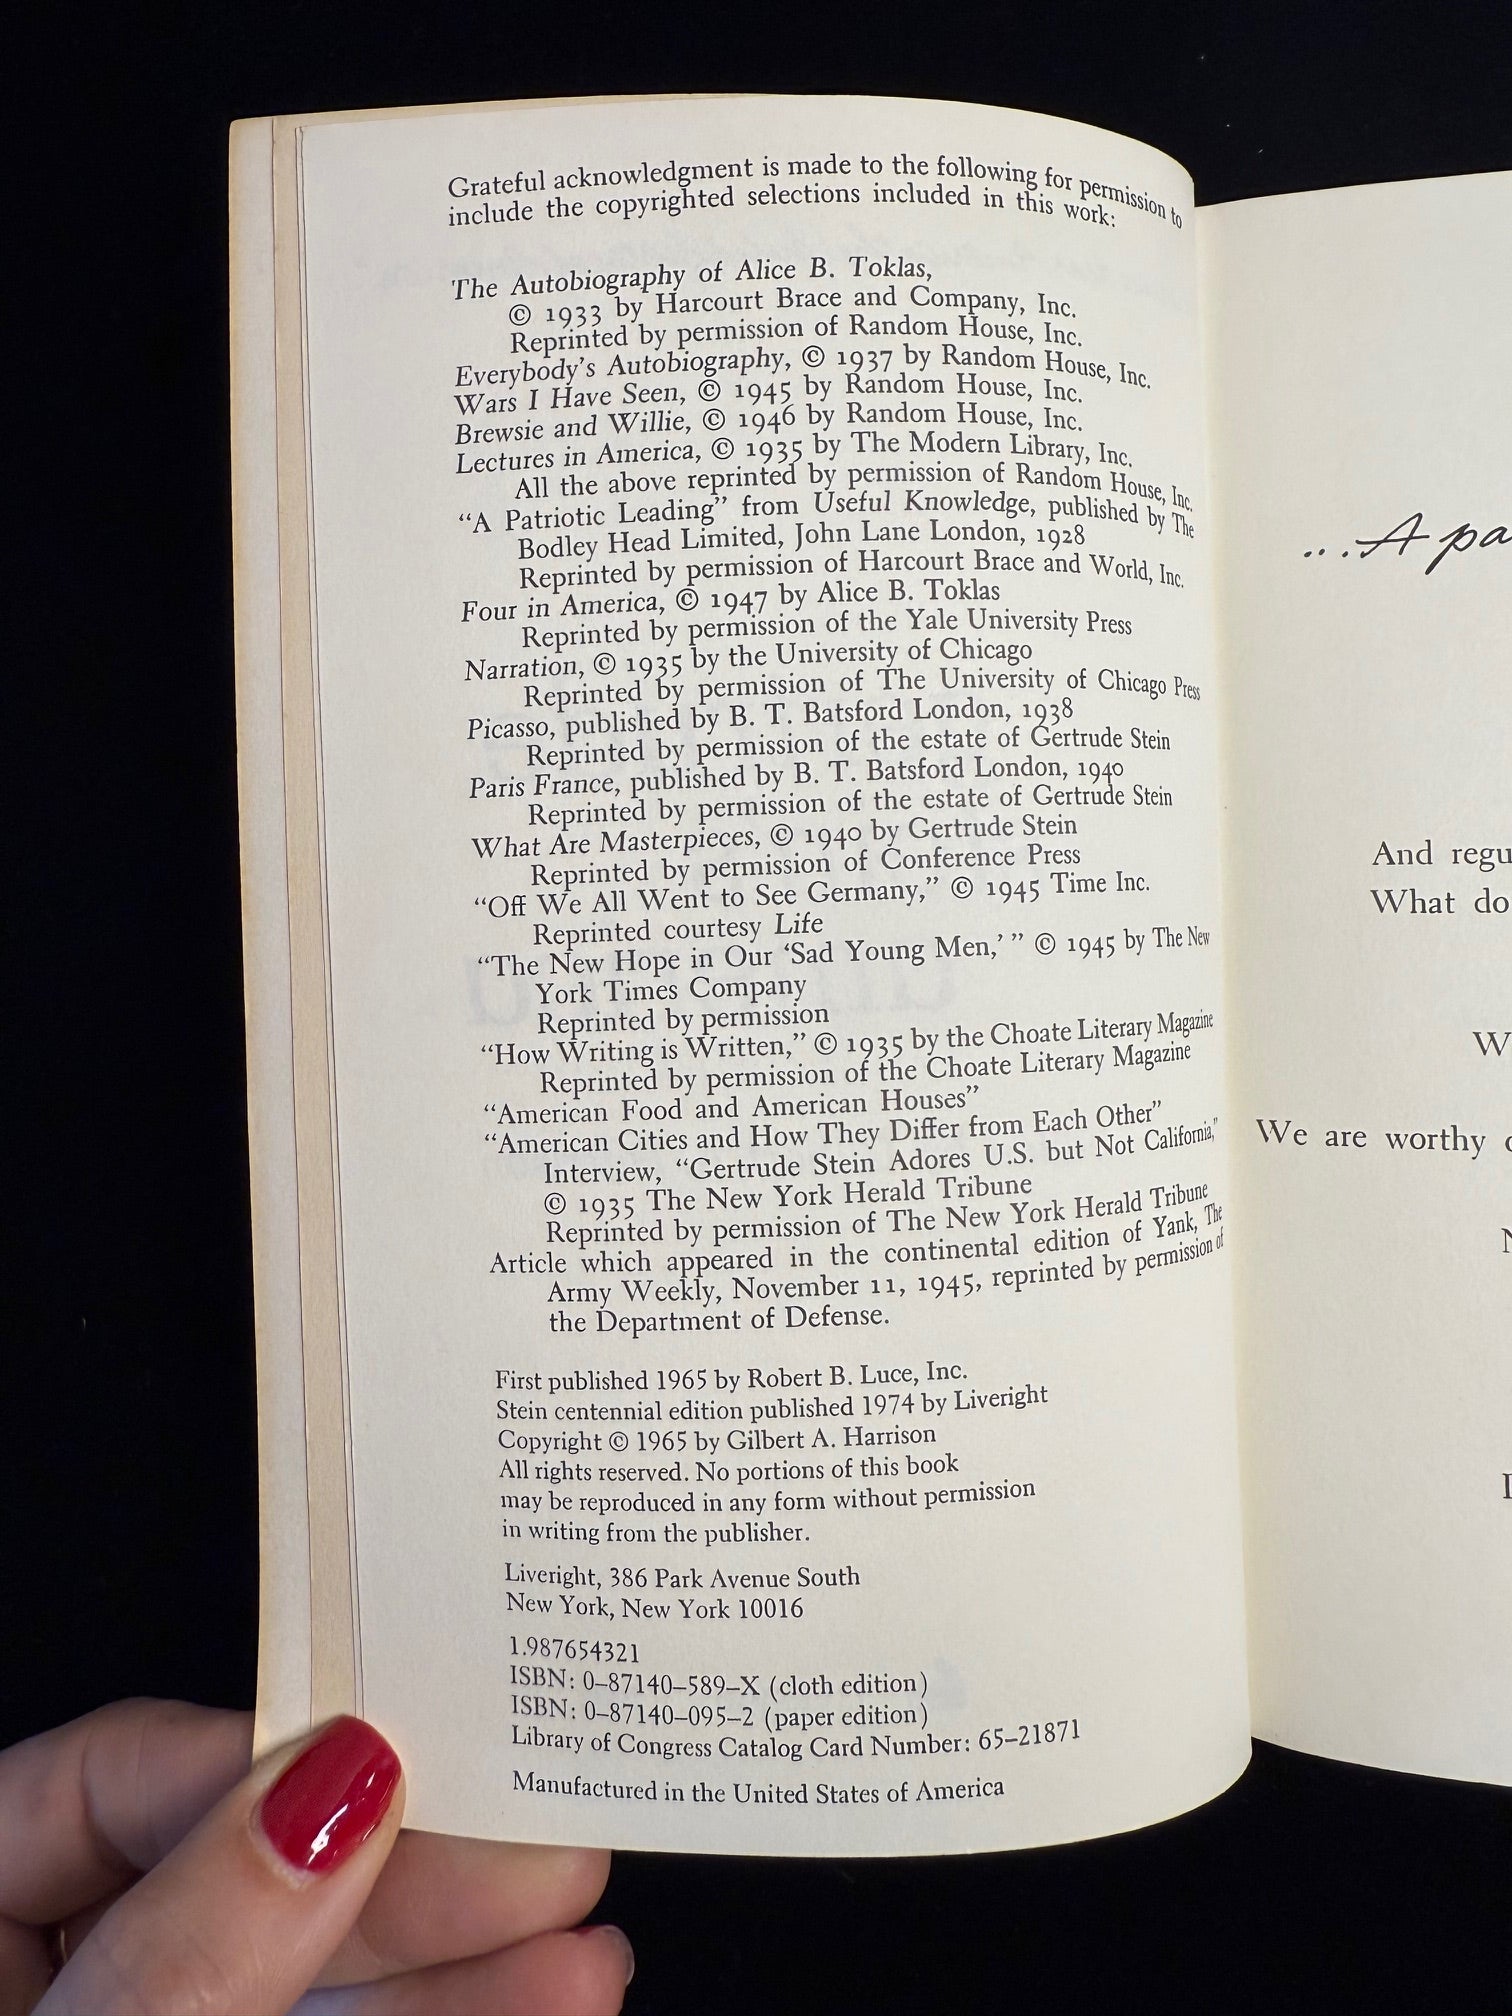 Grateful acknowledgment is made to the following for permission to
include the copyrighted selections included in this work:
The Autobiography of Alice B. Toklas,
© 1933 by Harcourt Brace and Company, Inc.
Reprinted by permission of Random House, Inc.
Everybody's Autobiography, © 1937 by Random House, Inc.
Wars I Have Seen, © 1945 by Random House, Inc.
Brewsie and Willie, © 1946 by Random House, Inc.
Lectures in America, © 1935 by The Modern Library, Inc.
All the above reprinted by permission of Random House, Inc.
“A Patriotic Leading” from Useful Knowledge, published by The
Bodley Head Limited, John Lane London, 1928
Reprinted by permission of Harcourt Brace and World, Inc.
Four in America, © 1947 by Alice B. Toklas
Reprinted by permission of the Yale University Press
Narration, © 1935 by the University of Chicago
Reprinted by permission of The University of Chicago Press
Picasso, published by B. T. Batsford London, 1938
Reprinted by permission of the estate of Gertrude Stein
Paris France, published by B. T. Batsford London, 1940
Reprinted by permission of the estate of Gertrude Stein
What Are Masterpieces, © 1940 by Gertrude Stein
Reprinted by permission of Conference Press
“Off We All Went to See Germany,” © 1945 Time Inc.
Reprinted courtesy Life
“The New Hope in Our ‘Sad Young Men,’ ” © 1945 by The New
York Times Company
Reprinted by permission
“How Writing is Written,” © 1935 by the Choate Literary Magazine
Reprinted by permission of the Choate Literary Magazine
“American Food and American Houses”
“American Cities and How They Differ from Each Other”
Interview, “Gertrude Stein Adores U.S. but Not California,”
© 1935 The New York Herald Tribune
Reprinted by permission of The New York Herald Tribune
Article which appeared in the continental edition of Yank, The
Army Weekly, November 11, 1945, reprinted by permission of
the Department of Defense.
First published 1965 by Robert B. Luce, Inc.
Stein centennial edition published 1974 by Liveright
Copyright © 1965 by Gilbert A. Harrison
All rights reserved. No portions of this book
may be reproduced in any form without permission
in writing from the publisher.
Liveright, 386 Park Avenue South
New York, New York 10016
1.987654321
ISBN: 0–87140–589–X (cloth edition)
ISBN: 0–87140–095–2 (paper edition)
Library of Congress Catalog Card Number: 65–21871
Manufactured in the United States of America
...A pa
And regu
What do
W
We are worthy